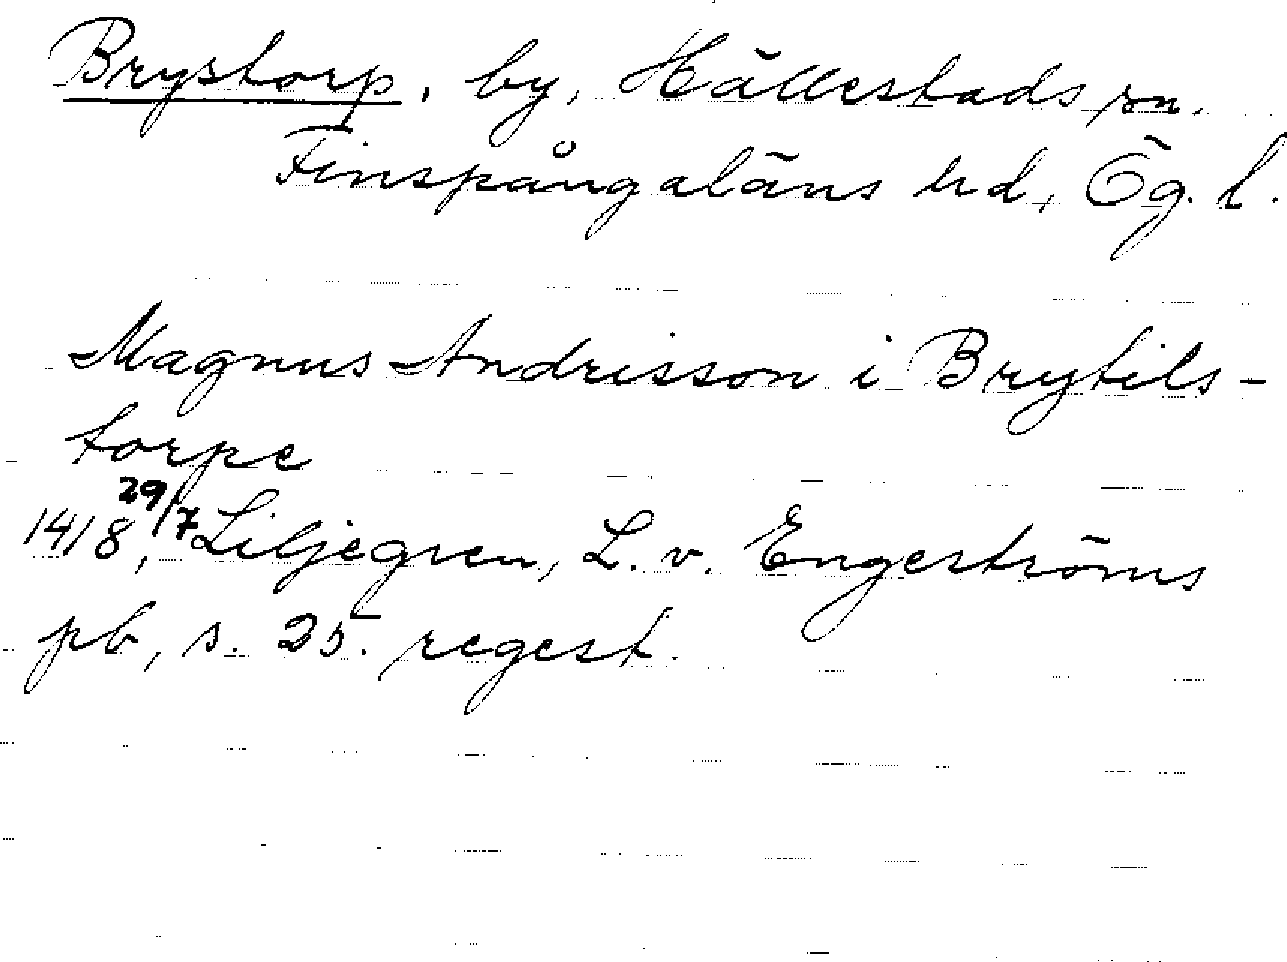 Brystorp, by, Hällestads sn.
Finspångaläns hd, Ög. l.
Magnus Andrisson i Brytils-
torpe
1418, 29/7 Liljegren, L. v. Engeströms
pb, s. 25. regest.